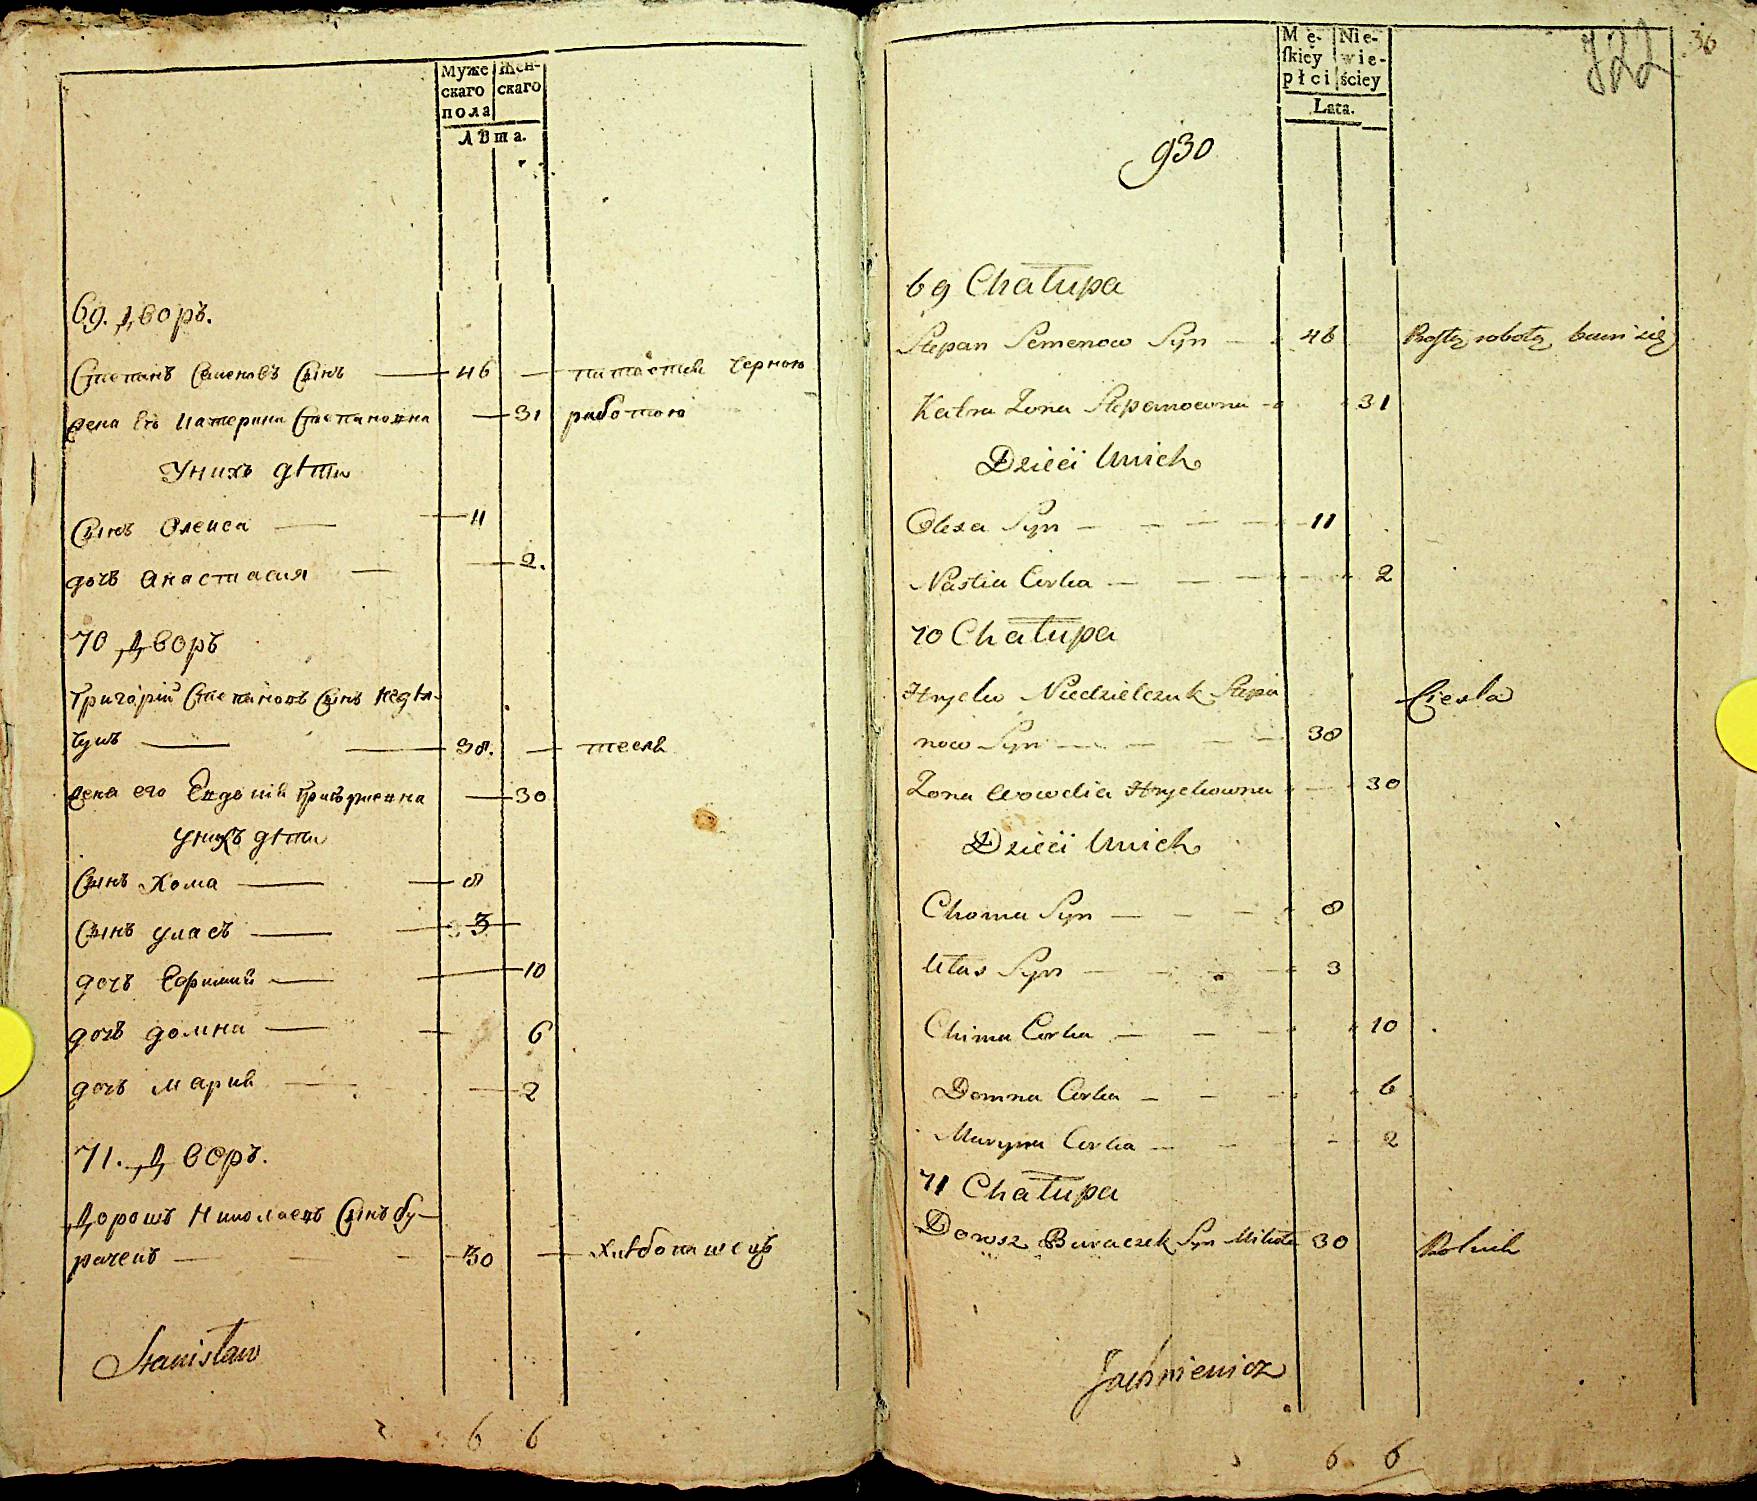 Муже
скаго
пола
Жен-
скаго
Лѣта.
69. Дворъ.
Степанъ Семеновъ Сынъ — 46 — питается черною
жена Его Катерина Степановна — 31 работою
У нихъ дѣти
Сынъ Олекса — 11
дочь Анастасия — 2.
70 Дворъ
Григорій Степановъ Сынъ Недѣл-
чукъ — 38. — тесля
жена его Евдокія Григорьевна — 30
У нихъ дѣти
Сынъ Хома — 8
Сынъ Уласъ — 3
дочь Ефимия — 10
дочь Домна — 6
дочь Мария — 2
71. Дворъ.
Дорошъ Николаевъ Сынъ Бу-
рачекъ — 30 — хлѣбопашецъ
Stanisław
6 6
Mę-
skiey
płci
Nie-
wie-
sciey
Lata.
922
36
930
69 Chałupa
Stepan Semenow Syn — 46 robotą bawi się
Katra Zona Stepanowna — 31
Dzieci Unich
Olexa Syn — 11
Nastia Corka — 2
70 Chałupa
Hryćko Niedzielczuk Stepa Ciesla
now Syn — 38
Zona Wowdia Hryckowna — 30
Dzieci Unich
Choma Syn — 8
Ułas Syn — 3
Chima Corka — 10
Domna Corka — 6
Maryna Corka — 2
71 Chałupa
Dorosz Buraczek Syn Mikoła 30 Rolnik
6 6